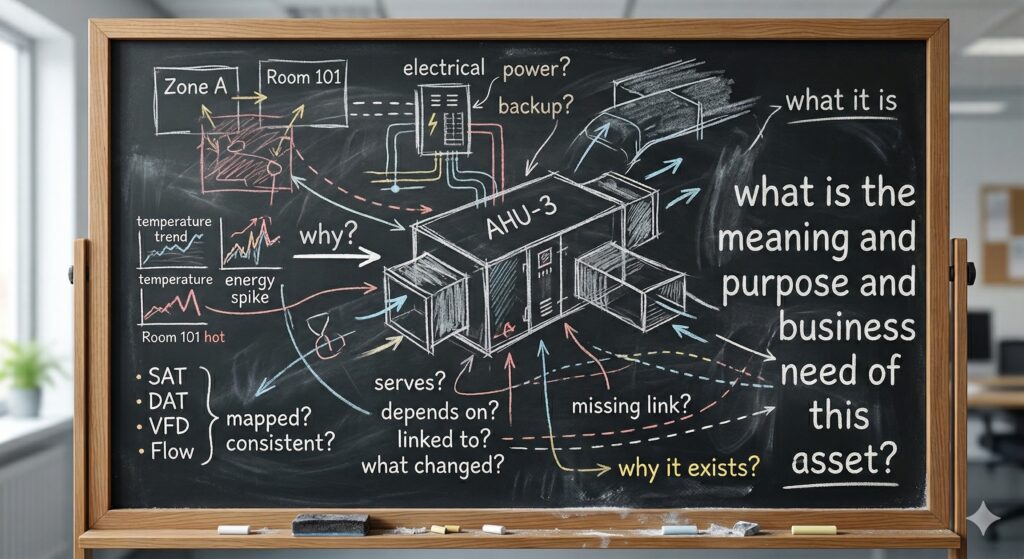 Zone A
Room 101
electrical
power?
backup?
what it is
AHU-3
temperature
trend
energy
spike
temperature
Room 101 hot
why?
• SAT
• DAT
• VFD
• Flow
mapped?
consistent?
serves?
depends on?
linked to?
what changed?
missing link?
why it exists?
what is the
meaning and
purpose and
business
need of
this
asset?